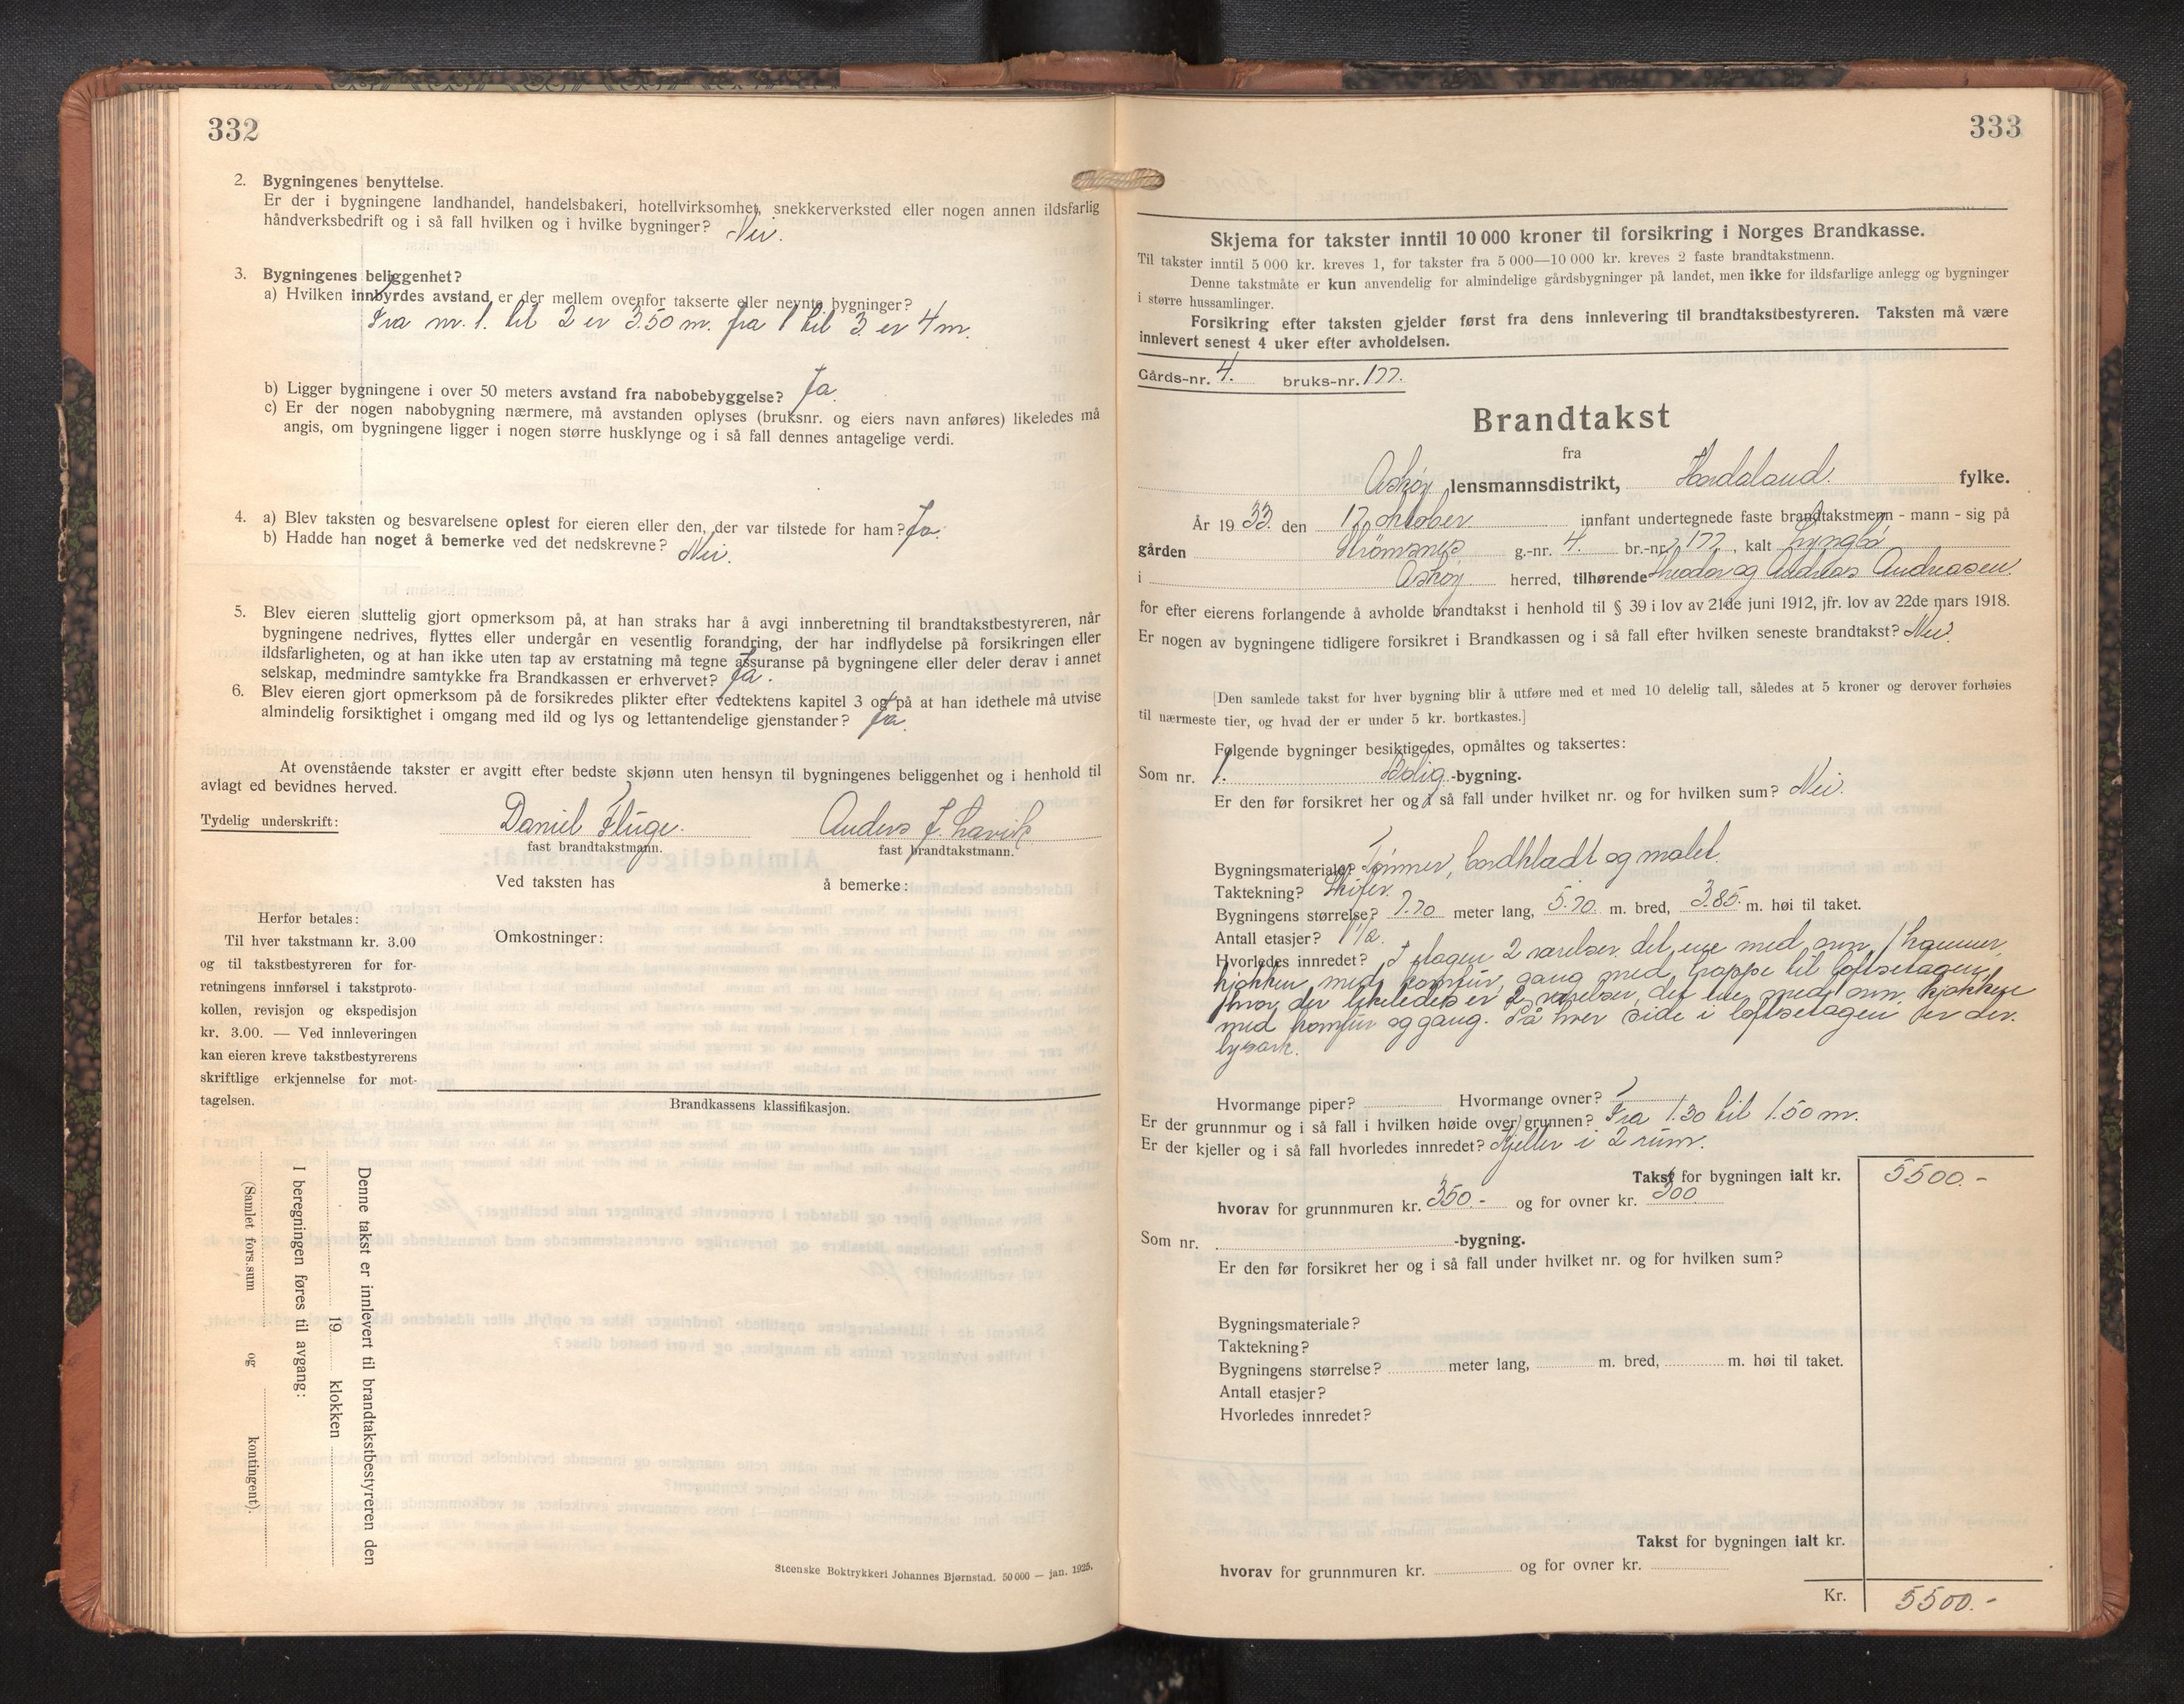 332
2. Bygningenes benyttelse.
Er der i bygningene landhandel, handelsbakeri, hotellvirksomhet, snekkerverksted eller nogen annen ildsfarlig
håndverksbedrift og i så fall hvilken og i hvilke bygninger? Nei.
3. Bygningenes beliggenhet?
a) Hvilken innbyrdes avstand er der mellem ovenfor takserte eller nevnte bygninger?
Fra nr. 1. til 2 er 3.50 m. fra 1 til 3 er 4 m.
b) Ligger bygningene i over 50 meters avstand fra nabobebyggelse? Ja.
c) Er der nogen nabobygning nærmere, må avstanden oplyses (bruksnr. og eiers navn anføres) likeledes må
angis, om bygningene ligger i nogen større husklynge og i så fall dennes antagelige verdi.
4. a) Blev taksten og besvarelsene oplest for eieren eller den, der var tilstede for ham? Ja.
b) Hadde han noget å bemerke ved det nedskrevne? Nei.
5. Blev eieren sluttelig gjort opmerksom på, at han straks har å avgi innberetning til brandtakstbestyreren, når
bygningene nedrives, flyttes eller undergår en vesentlig forandring, der har indflydelse på forsikringen eller
ildsfarligheten, og at han ikke uten tap av erstatning må tegne assuranse på bygningene eller deler derav i annet
selskap, medmindre samtykke fra Brandkassen er erhvervet? Ja.
6. Blev eieren gjort opmerksom på de forsikredes plikter efter vedtektens kapitel 3 og på at han idethele må utvise
almindelig forsiktighet i omgang med ild og lys og lettantendelige gjenstander? Ja.
At ovenstående takster er avgitt efter bedste skjønn uten hensyn til bygningenes beliggenhet og i henhold til
avlagt ed bevidnes herved.
Tydelig underskrift: Daniel Fluge. Anders J. Lavik
fast brandtakstmann. fast brandtakstmann.
Ved taksten has å bemerke:
Herfor betales:
Til hver takstmann kr. 3.00
og til takstbestyreren for for-
retningens innførsel i takstproto-
kollen, revisjon og ekspedisjon
kr. 3.00. — Ved innleveringen
kan eieren kreve takstbestyrerens
skriftlige erkjennelse for mot-
tagelsen.
Omkostninger:
Brandkassens klassifikasjon.
Denne takst er innlevert til brandtakstbestyreren den
19 klokken
I beregningen føres til avgang:
(Samlet fors.sum og kontingent).
Steenske Boktrykkeri Johannes Bjørnstad. 50 000 — jan. 1925.
333
Skjema for takster inntil 10 000 kroner til forsikring i Norges Brandkasse.
Til takster inntil 5 000 kr. kreves 1, for takster fra 5 000—10 000 kr. kreves 2 faste brandtakstmenn.
Denne takstmåte er kun anvendelig for almindelige gårdsbygninger på landet, men ikke for ildsfarlige anlegg og bygninger
i større hussamlinger.
Forsikring efter taksten gjelder først fra dens innlevering til brandtakstbestyreren. Taksten må være
innlevert senest 4 uker efter avholdelsen.
Gårds-nr. 4. bruks-nr. 177.
Brandtakst
fra
Askøy lensmannsdistrikt, Hordaland. fylke.
År 1933 den 17 oktober innfant undertegnede faste brandtakstmenn - mann - sig på
gården Strömsnes g.-nr. 4. br.-nr. 177, kalt Lyngbö
i Askøy herred, tilhørende Theodor og Andreas Andreasen
for efter eierens forlangende å avholde brandtakst i henhold til § 39 i lov av 21de juni 1912, jfr. lov av 22de mars 1918.
Er nogen av bygningene tidligere forsikret i Brandkassen og i så fall efter hvilken seneste brandtakst? Nei.
[Den samlede takst for hver bygning blir å utføre med et med 10 delelig tall, således at 5 kroner og derover forhøies
til nærmeste tier, og hvad der er under 5 kr. bortkastes.]
Følgende bygninger besiktigedes, opmåltes og taksertes:
Som nr. 1. Bolig-bygning.
Er den før forsikret her og i så fall under hvilket nr. og for hvilken sum? Nei.
Bygningsmateriale? Tömmer, bordkladt og malet.
Taktekning? Skifer.
Bygningens størrelse? 7.70 meter lang, 5.70 m. bred, 3.85 m. høi til taket.
Antall etasjer? 1½.
Hvorledes innredet? I etagen 2 værelser, det ene med ovn, 1 kammer,
kjøkken med komfur, gang med trappe til loftsetagen,
hvor der likeledes er 2 værelser, det ene med ovn, kjøkken
med komfur og gang. På hver side i loftsetagen er der
lysark.
Hvormange piper? Hvormange ovner?
Er der grunnmur og i så fall i hvilken høide over grunnen? Fra 1.30 til 1.50 m.
Er der kjeller og i så fall hvorledes innredet? Kjeller i 2 rum.
Takst for bygningen ialt kr. 5500.-
hvorav for grunnmuren kr. 350.- og for ovner kr. 300
Som nr. -bygning.
Er den før forsikret her og i så fall under hvilket nr. og for hvilken sum?
Bygningsmateriale?
Taktekning?
Bygningens størrelse? meter lang, m. bred, m. høi til taket.
Antall etasjer?
Hvorledes innredet?
Takst for bygningen ialt kr.
hvorav for grunnmuren kr. og for ovner kr.
Kr. 5500.-